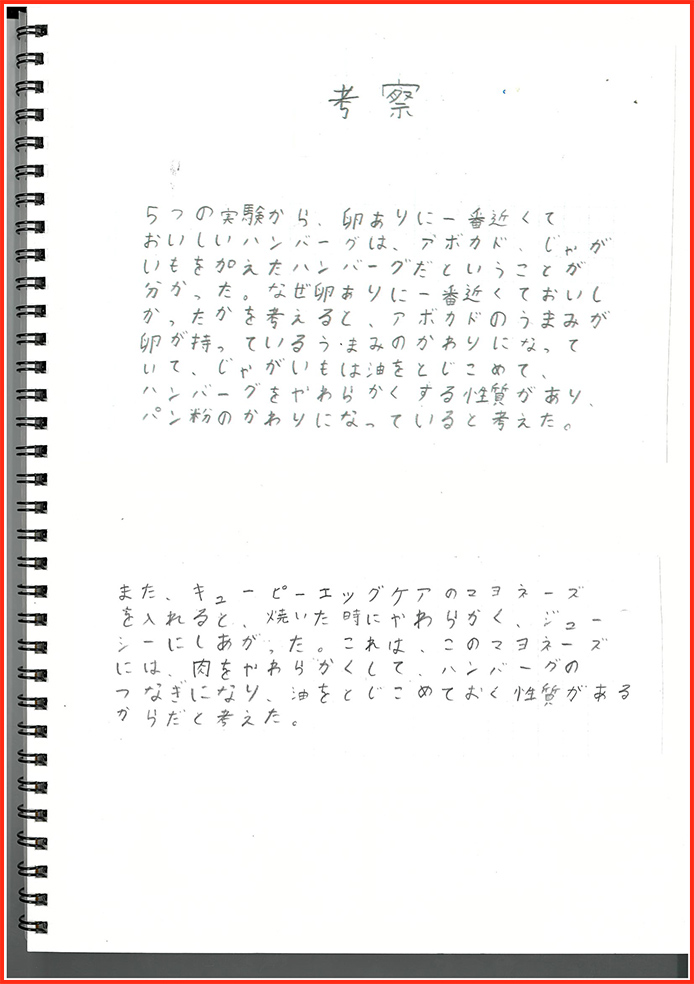 考察
5つの実験から、卵ありに一番近くて
おいしいハンバーグは、アボカド、じゃが
いもを加えたハンバーグだということが
分かった。なぜ卵ありに一番近くておいし
かったかを考えると、アボカドのうまみが
卵が持っているうまみのかわりになって
いて、じゃがいもは油をとじこめて、
ハンバーグをやわらかくする性質があり、
パン粉のかわりになっていると考えた。
また、キューピーエッグケアのマヨネーズ
を入れると、焼いた時にやわらかく、ジュー
シーにしあがった。これは、このマヨネーズ
には、肉をやわらかくして、ハンバーグの
つなぎになり、油をとじこめておく性質がある
からだと考えた。